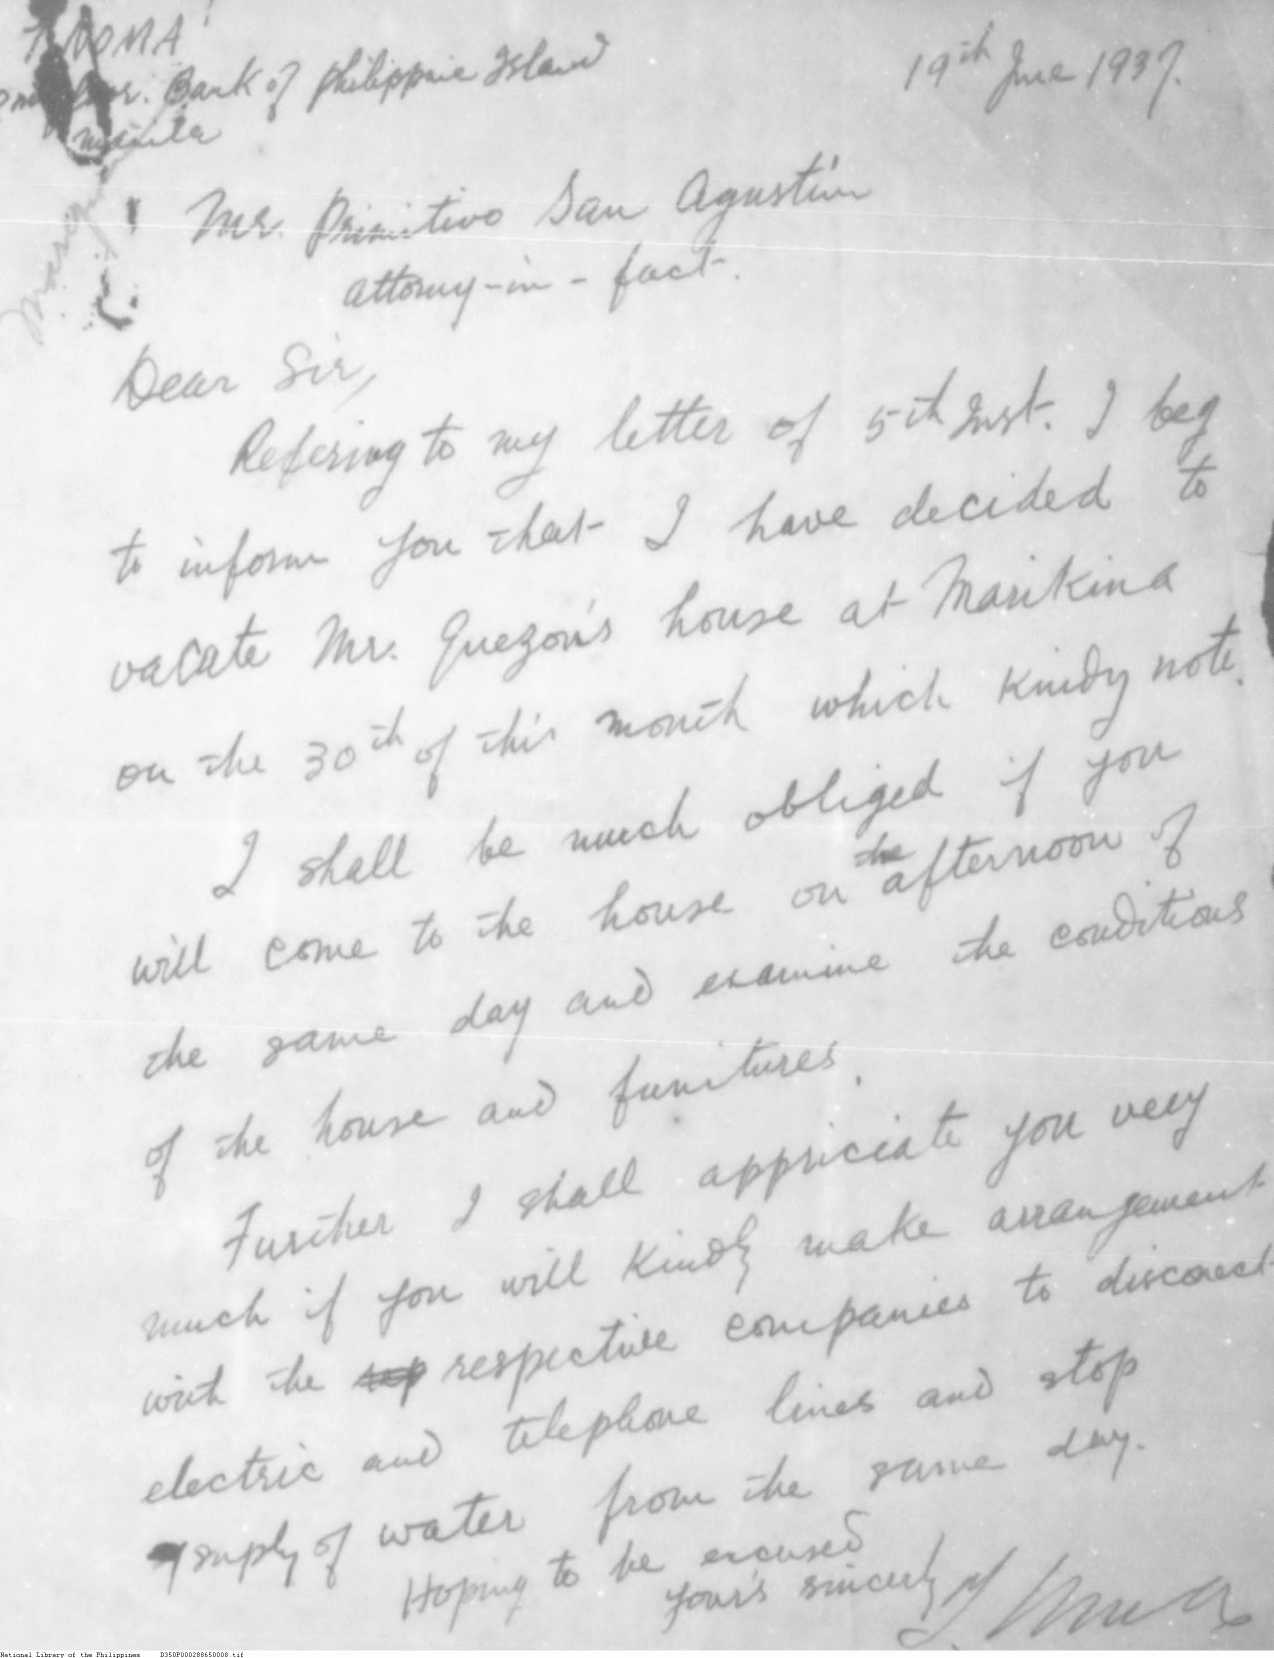 19th June 1937.
Bank of Philippine Island
Manila
Mr. Primitivo San Agustin
Attorney-in-fact.
Dear Sir,
Refering to my letter of 5th Inst. I beg
to inform you that I have decided to
vacate Mr. Quezon's house at Marikina
on the 30th of this month which kindly note.
I shall be much obliged if you
will come to the house on the afternoon of
the same day and examine the conditions
of the house and funitures.
Further I shall appriciate you very
much if you will kindly make arrangement
with the respective companies to disconect
electric and telephone lines and stop
suply of water from the same day.
Hoping to be excused
Your's sincerly
National Library of the Philippines D350P000288650008.tif